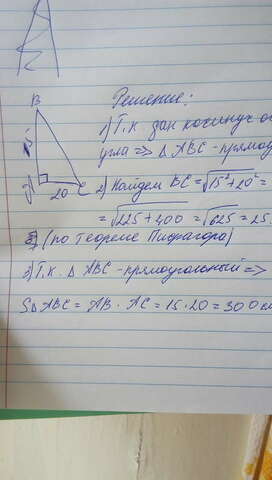 Решение:
B
1) Т.к дан косинус
15
угла => △ ABC - прямоу
A
20
C
2) Найдем BC = √15² + 20² =
= √225 + 400 = √625 = 25
(по теореме Пифагора)
3) Т.к. △ ABC - прямоугольный =>
S△ABC = AB · AC = 15 · 20 = 300 см